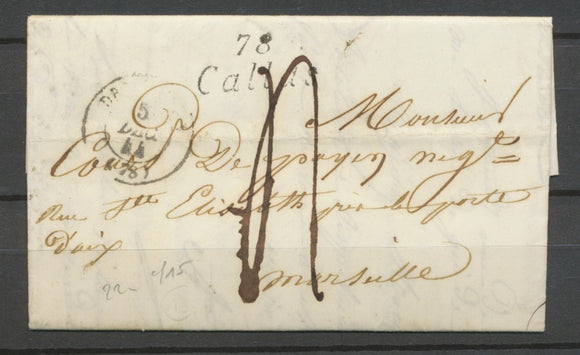 78
Callas
5
DEC
44
Monsieur
De negt=
Rue Ste Elisabeth près la porte
d'aix
Marseille
22- c/15